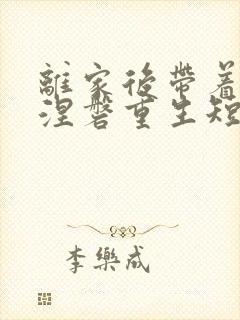 離家後帶着
涅磐重生短
李樂成